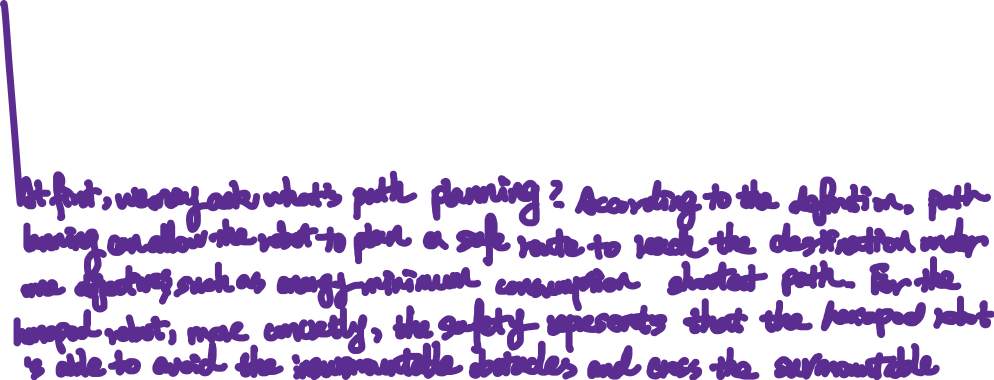 At first, we may ask what is path planning? According to the definition, path
planning can allow the robot to plan a safe route to reach the destination under
some such as energy minimum consumption shortest path For the
hexapod robot, more concretely, the safety represents that the hexapod robot
is able to avoid the insurmountable obstacles and cross the surmountable